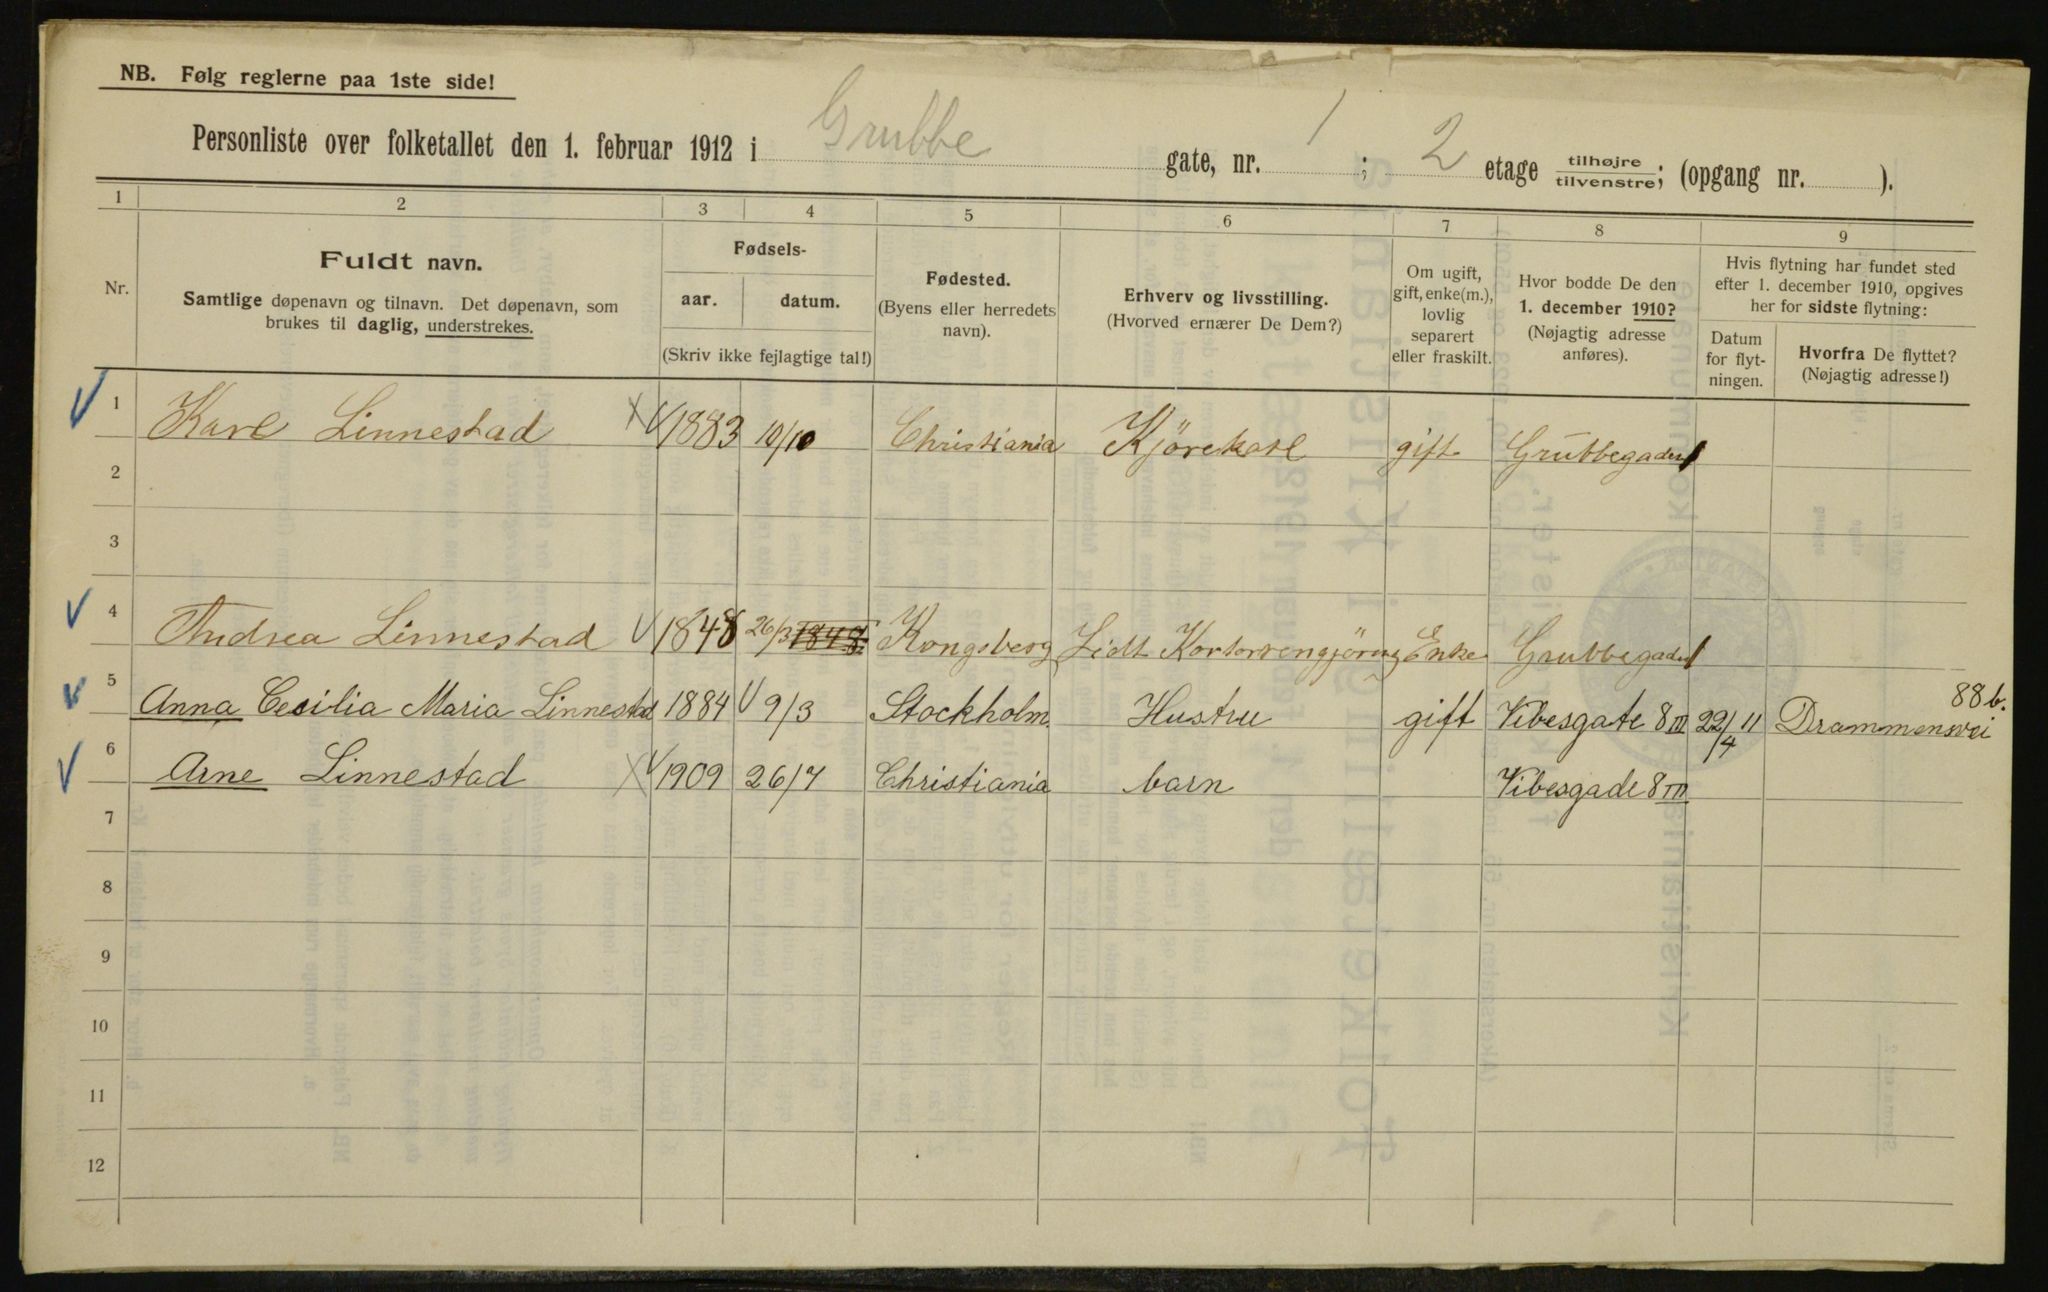 NB. Følg reglerne paa 1ste side!
Personliste over folketallet den 1. februar 1912 i Grubbe gate, nr. 1; 2 etage tilhøjre/tilvenstre; (opgang nr. ).
1 2 3 4 5 6 7 8 9
Nr.
Fuldt navn.
Samtlige døpenavn og tilnavn. Det døpenavn, som
brukes til daglig, understrekes.
Fødsels-
aar. datum.
(Skriv ikke fejlagtige tal!)
Fødested.
(Byens eller herredets
navn).
Erhverv og livsstilling.
(Hvorved ernærer De Dem?)
Om ugift,
gift, enke(m.),
lovlig
separert
eller fraskilt.
Hvor bodde De den
1. december 1910?
(Nøjagtig adresse
anføres).
Hvis flytning har fundet sted
efter 1. december 1910, opgives
her for sidste flytning:
Datum
for flyt-
ningen.
Hvorfra De flyttet?
(Nøjagtig adresse!)
1 Karl Linnestad 1883 10/10 Christiania Kjörekarl gift Grubbegaden 1
2
3
4 Andrea Linnestad 1848 26/3 1848 Kongsberg Lidt Kontorrengjöring Enke Grubbegaden 1
5 Anna Cecilia Maria Linnestad 1884 9/3 Stockholm Hustru gift Vibesgate 8 III 22/4 11 Drammensvei 88b.
6 Arne Linnestad 1909 26/7 Christiania barn Vibesgade 8 III
7
8
9
10
11
12